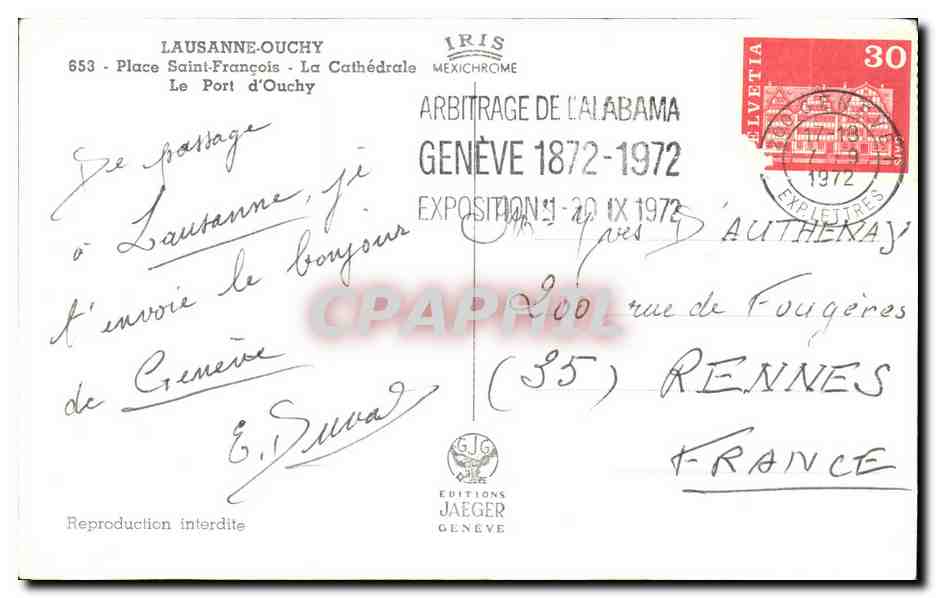 LAUSANNE-OUCHY
653 - Place Saint-François - La Cathédrale
Le Port d'Ouchy
IRIS
MEXICHROME
HELVETIA
30
ARBITRAGE DE L'ALABAMA
GENÈVE 1872-1972
EXPOSITION 9-30 IX 1972
GENÈVE 1
1972
EXP. LETTRES
De passage
à Lausanne, je
t'envoie le bonjour
de Genève
E. Duval
Mr Yves D'AUTHENAY
200 rue de Fougères
(35) RENNES
FRANCE
CPAPHIL
GJG
EDITIONS
JAEGER
GENÈVE
Reproduction interdite